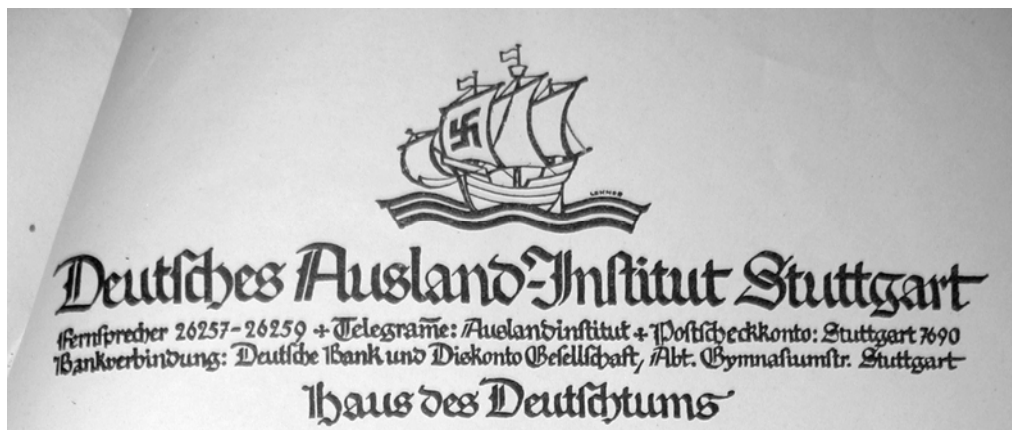 LEHMED
Deutſches Ausland-Inſtitut Stuttgart
Fernſprecher 26257-26259 + Telegram̅e: Auslandinſtitut + Poſtſcheckkonto: Stuttgart 7690
Bankverbindung: Deutſche Bank und Diskonto Geſellſchaft, Abt. Gymnaſiumstr. Stuttgart
Haus des Deutſchtums